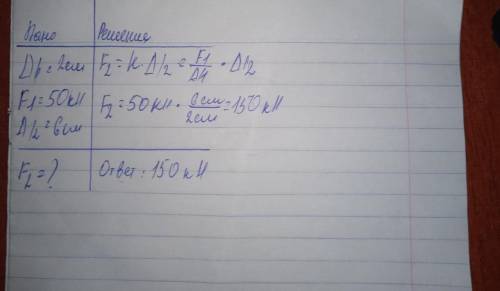 Дано Решение
Δl₁ = 2см F₂ = k · Δl₂ = F1/Δl1 · Δl2
F1 = 50кН F₂ = 50кН · 6см/2см = 150кН
Δl₂ = 6см
F₂ = ? Ответ: 150 кН